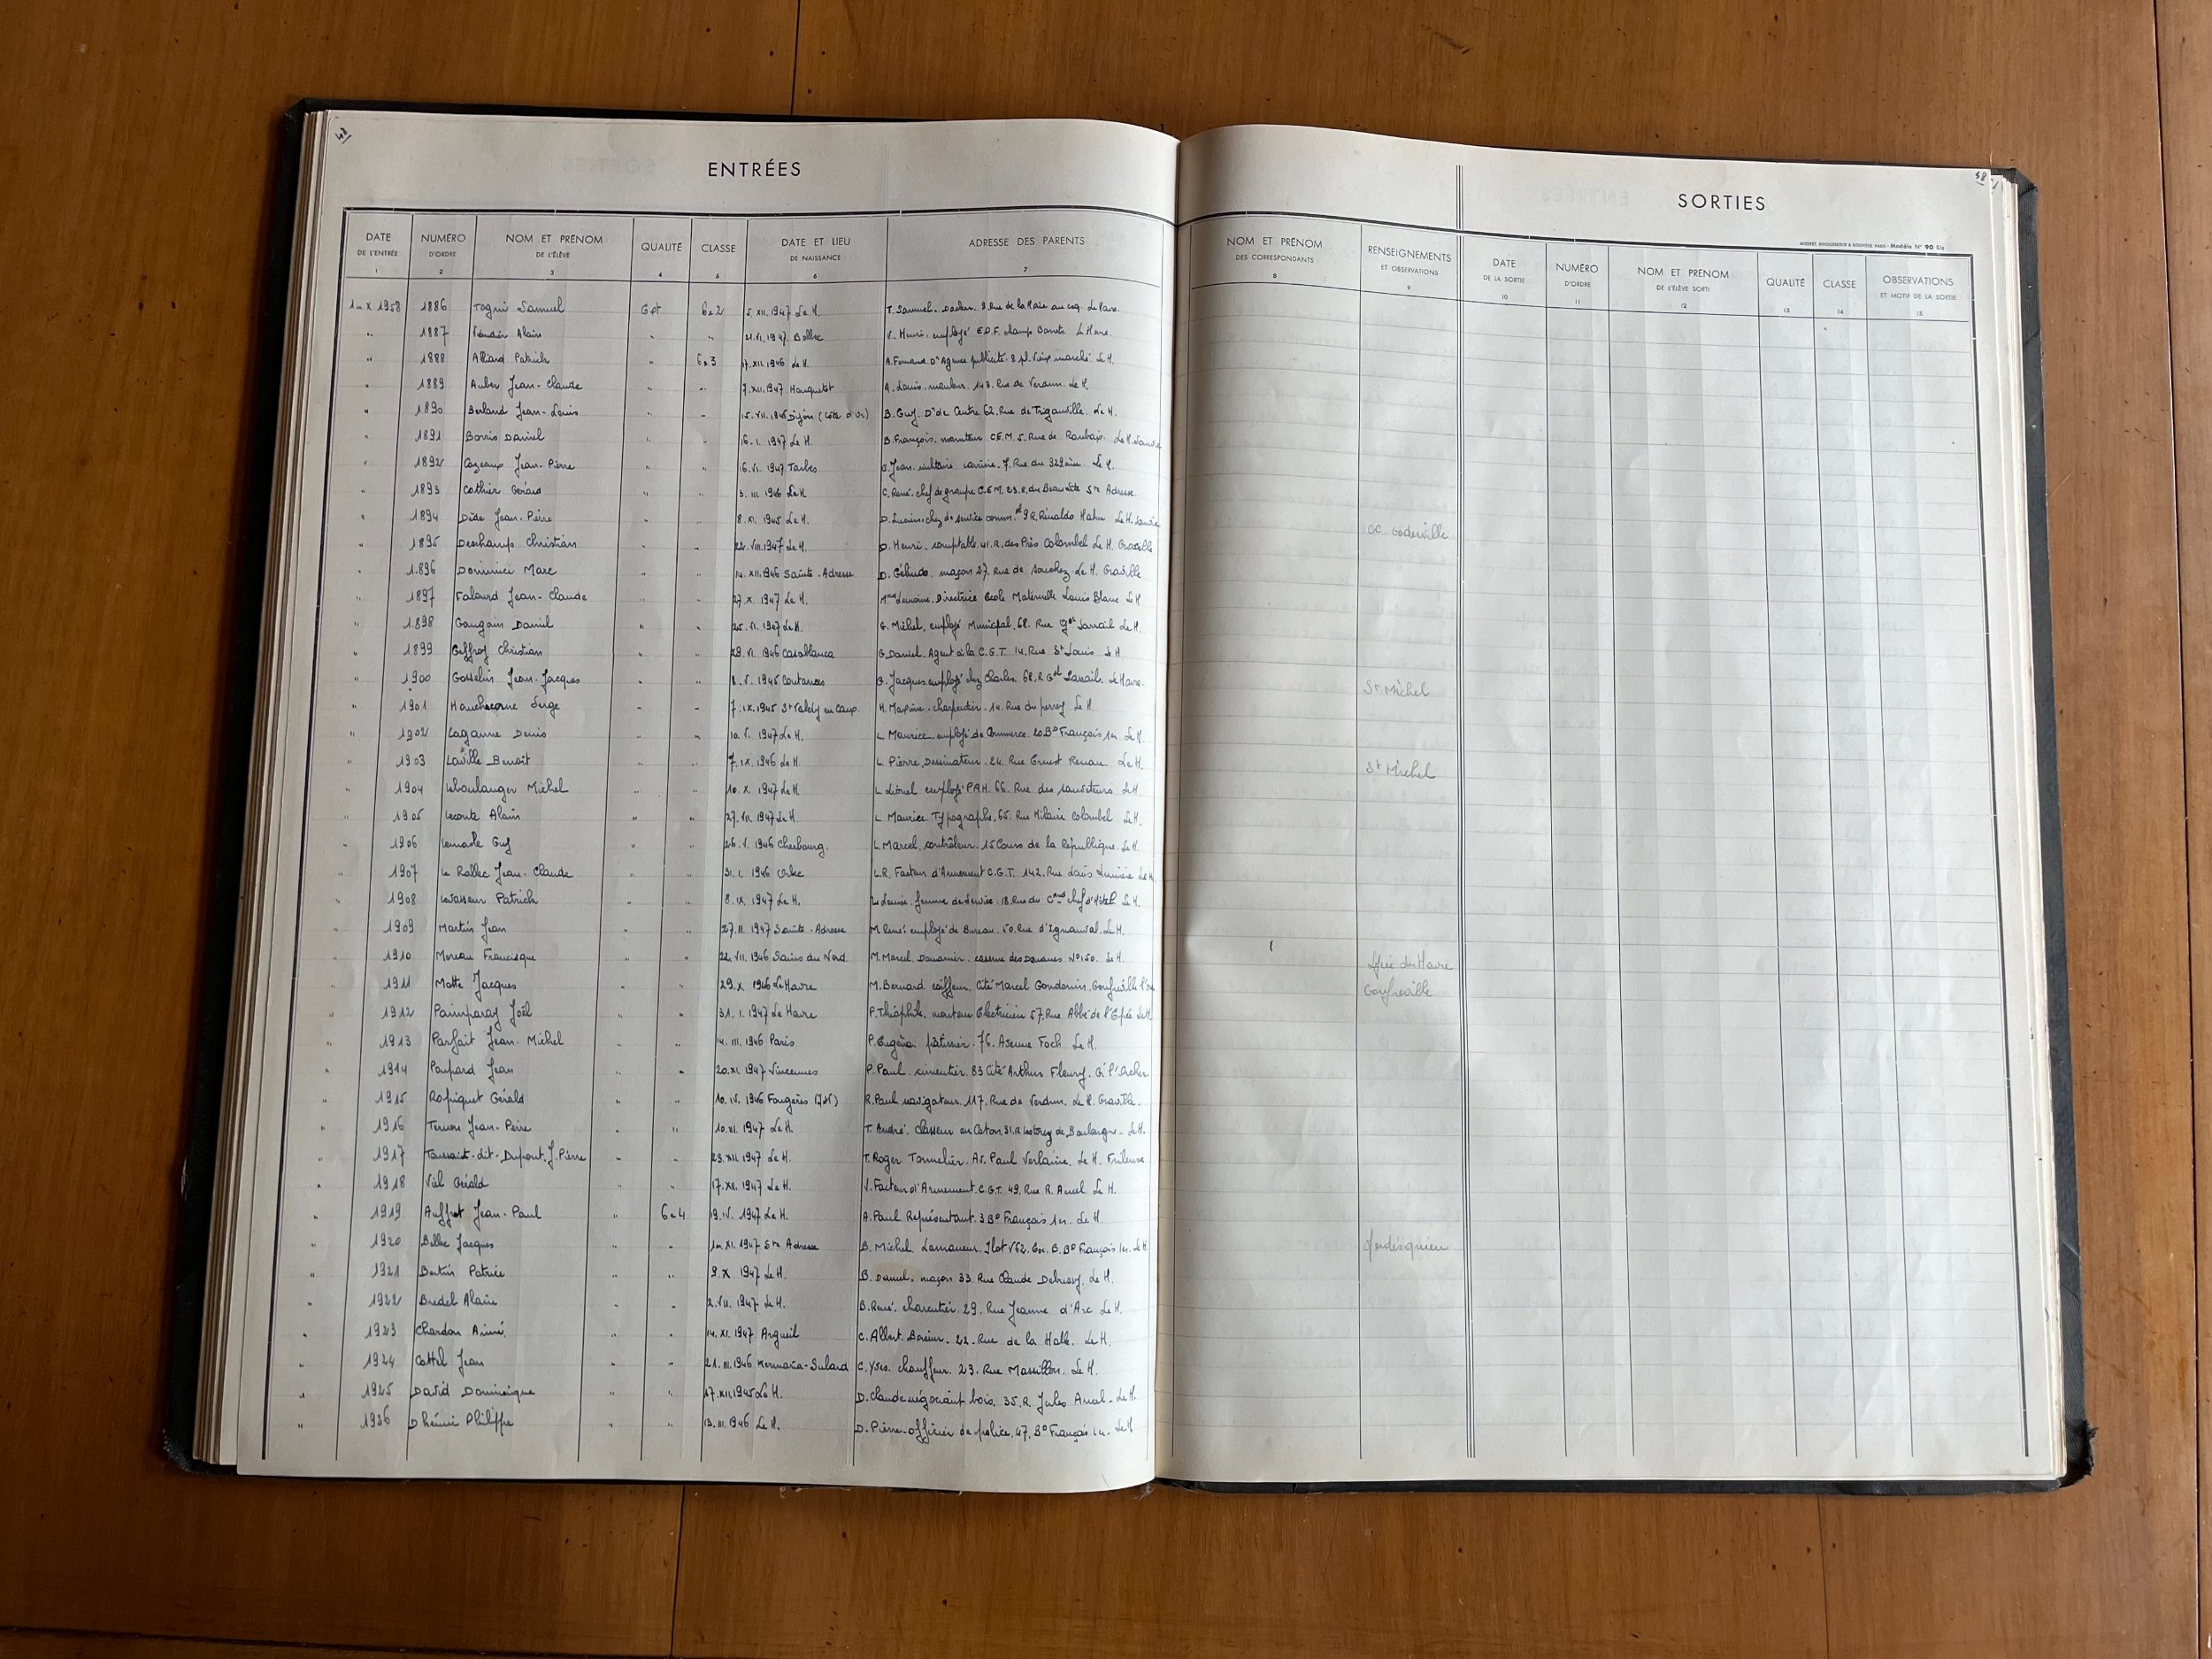 48
ENTRÉES
DATE DE L'ENTRÉE 1
NUMÉRO D'ORDRE 2
NOM ET PRÉNOM DE L'ÉLÈVE 3
QUALITÉ 4
CLASSE 5
DATE ET LIEU DE NAISSANCE 6
ADRESSE DES PARENTS 7
1er X 1958 1886 Samuel 6e2 5. XII. 1947 Le H. T. Samuel. Docker. Rue de la
" 1887 Alain " " 21. VI. 1947. Bolbec V. Henri. employé E.D.F. champ
" 1888 Allard Patrick " 6e3 17. XII. 1946 Le H. A. Fernand. Dr Agence publicité. 8 pl. Vieux marché Le H.
" 1889 Auber Jean-Claude " " 7. XII. 1947 A. Louis. 148. Rue de Verdun. Le H.
" 1890 Berland Jean-Louis " " 15. VII. 1946 Dijon (Côte d'Or) B. Guy. Dr de Centre 62. Rue de Trigauville. Le H.
" 1891 Daniel " " 16. I. 1947 Le H. B. François. C.E.M. 5. Rue de Roubaix. Le H.
" 1892 Cazeaux Jean-Pierre " " 16. VI. 1947 Tarbes C. Jean. militaire carrière. 7. Rue du 329ème. Le H.
" 1893 Cothier Gérard " " 3. III. 1946 Le H. C. René. chef de groupe C.E.M. 23. R. du Ste Adresse
" 1894 Jean-Pierre " " 8. XI. 1945 Le H. D. Lucien. de service 9 R. Rinaldo Hahn Le H.
" 1895 Deschamps Christian " " 22. VII. 1947 Le H. D. Henri. comptable. 41. R. des Prés Colombel Le H. Graville
" 1896 Dominici Marc " " 14. XII. 1946 Sainte-Adresse D. maçon 27. Rue de Souchez Le H. Graville
" 1897 Jean-Claude " " 27. X. 1947 Le H. Mme Directrice Ecole Maternelle Louis Blanc Le H
" 1898 Gaugain Daniel " " 25. VI. 1947 Le H. G. Michel, employé Municipal. 68. Rue Gal Sarrail Le H.
" 1899 Geffroy Christian " " 29. VI. 1946 Casablanca G. Daniel. Agent à la C.G.T. 14. Rue St Louis Le H
" 1900 Gosselin Jean-Jacques " " 8. V. 1945 Coutances G. Jacques employé chez Charles. 68. R Gal Sarrail. Le Havre
" 1901 Hauchecorne Serge " " 7. IX. 1945 St Valéry en Caux H. Maxime. charpentier. 14. Rue du perrey Le H
" 1902 Laganne Denis " " 10. V. 1947 Le H. L Maurice employé de Commerce. 20 Bd François 1er Le H.
" 1903 Laville Benoît " 7. IX. 1946 Le H. L Pierre Dessinateur. 24. Rue Ernest Renan Le H.
" 1904 Leboulanger Michel " " 10. X. 1947 Le H. L Lionel employé PAH. 66. Rue des sauveteurs Le H
" 1905 Lecomte Alain " " 27. VII. 1947 Le H. L Maurice Typographe. 65. Rue Hilaire Colombel Le H.
" 1906 Guy " " 26. V. 1946 Cherbourg. L. Marcel, contrôleur. 15 Cours de la République. Le H.
" 1907 Le Rallec Jean-Claude " " 31. I. 1946 L.R. Facteur d'Armement C.G.T. 142. Rue Louis Lumière Le H.
" 1908 Levasseur Patrick " " 8. IX. 1947 Le H. Louise. femme de Service. 18. Rue du Chef d'Hôtel Le H.
" 1909 Martin Jean " " 27. II. 1947 Sainte-Adresse M René employé de Bureau. 50. Rue d'Ignauval. Le H.
" 1910 Moreau Francisque " " 22. VII. 1946 Sains du Nord. M. Marcel. Douanier. caserne des Douanes No 150. Le H.
" 1911 Motte Jacques " " 29. X. 1946 Le Havre M. Bernard coiffeur. Cité Marcel Gondouin. Gonfreville l'or
" 1912 Paimparay Joël " " 31. I. 1947 Le Havre P. Théophile. monteur Electricien 57. Rue Abbé de l'Epée Le H.
" 1913 Parfait Jean-Michel " " 14. III. 1946 Paris P. Eugène pâtissier. 76. Avenue Foch. Le H.
" 1914 Poupard Jean " " 20. XI. 1947 Vincennes P. Paul. cimentier. 83 Cité Arthur Fleury. G. l'Orcher
" 1915 Rapiquet Gérald " " 10. IV. 1946 Fougères R. Paul navigateur. 117. Rue de Verdun. Le H. Graville.
" 1916 Ternon Jean-Pierre " " 10. XI. 1947 Le H. T. André. Classeur en Coton. 31. R de Boulogne - Le H.
" 1917 Toussaint-dit-Dupont. J. Pierre " " 23. XII. 1947 Le H. T. Roger Tonnelier. Av. Paul Verlaine. Le H. Frileuse
" 1918 Viel Gérald " " 17. XII. 1947 Le H. V. Facteur d'Armement. C.G.T. 49. Rue R. Ancel. Le H.
" 1919 Auffret Jean-Paul " 6e4 19. IV. 1947 Le H. A. Paul Représentant. 3 Bd François 1er. Le H
" 1920 Jacques " " 1er. XI. 1947 Ste Adresse B. Michel. Lamaneur. Ilot V62. B. Bd François 1er. Le H
" 1921 Bertin Patrice " " 9. X 1947 Le H. B. Daniel. maçon 33. Rue Claude Debussy. Le H.
" 1922 Bredel Alain " " 2. VII. 1947 Le H. B. René. charcutier. 29. Rue Jeanne d'Arc Le H.
" 1923 Chardon Aimé. " " 14. XI. 1947 Argueil C. Albert. 22. Rue de la Halle. Le H.
" 1924 Cottel Jean " " 21. III. 1946 Kermaria-Sulard C. Yves. chauffeur. 23. Rue Massillon. Le H.
" 1925 David Dominique " " 17. XII. 1945 Le H. D. Claude négociant bois. 35. R. Jules Ancel. Le H.
" 1926 Philippe " " 13. III. 1946 Le H. D. Pierre. officier de police. 47. Bd François 1er. Le H
48
SORTIES
Modèle N° 90 Bis
NOM ET PRÉNOM DES CORRESPONDANTS 8
RENSEIGNEMENTS ET OBSERVATIONS 9
DATE DE LA SORTIE 10
NUMÉRO D'ORDRE 11
NOM ET PRÉNOM DE L'ÉLÈVE SORTI 12
QUALITÉ 13
CLASSE 14
OBSERVATIONS ET MOTIF DE LA SORTIE 15
CC Goderville
St Michel
St Michel
Lycée du Havre
Gonfreville